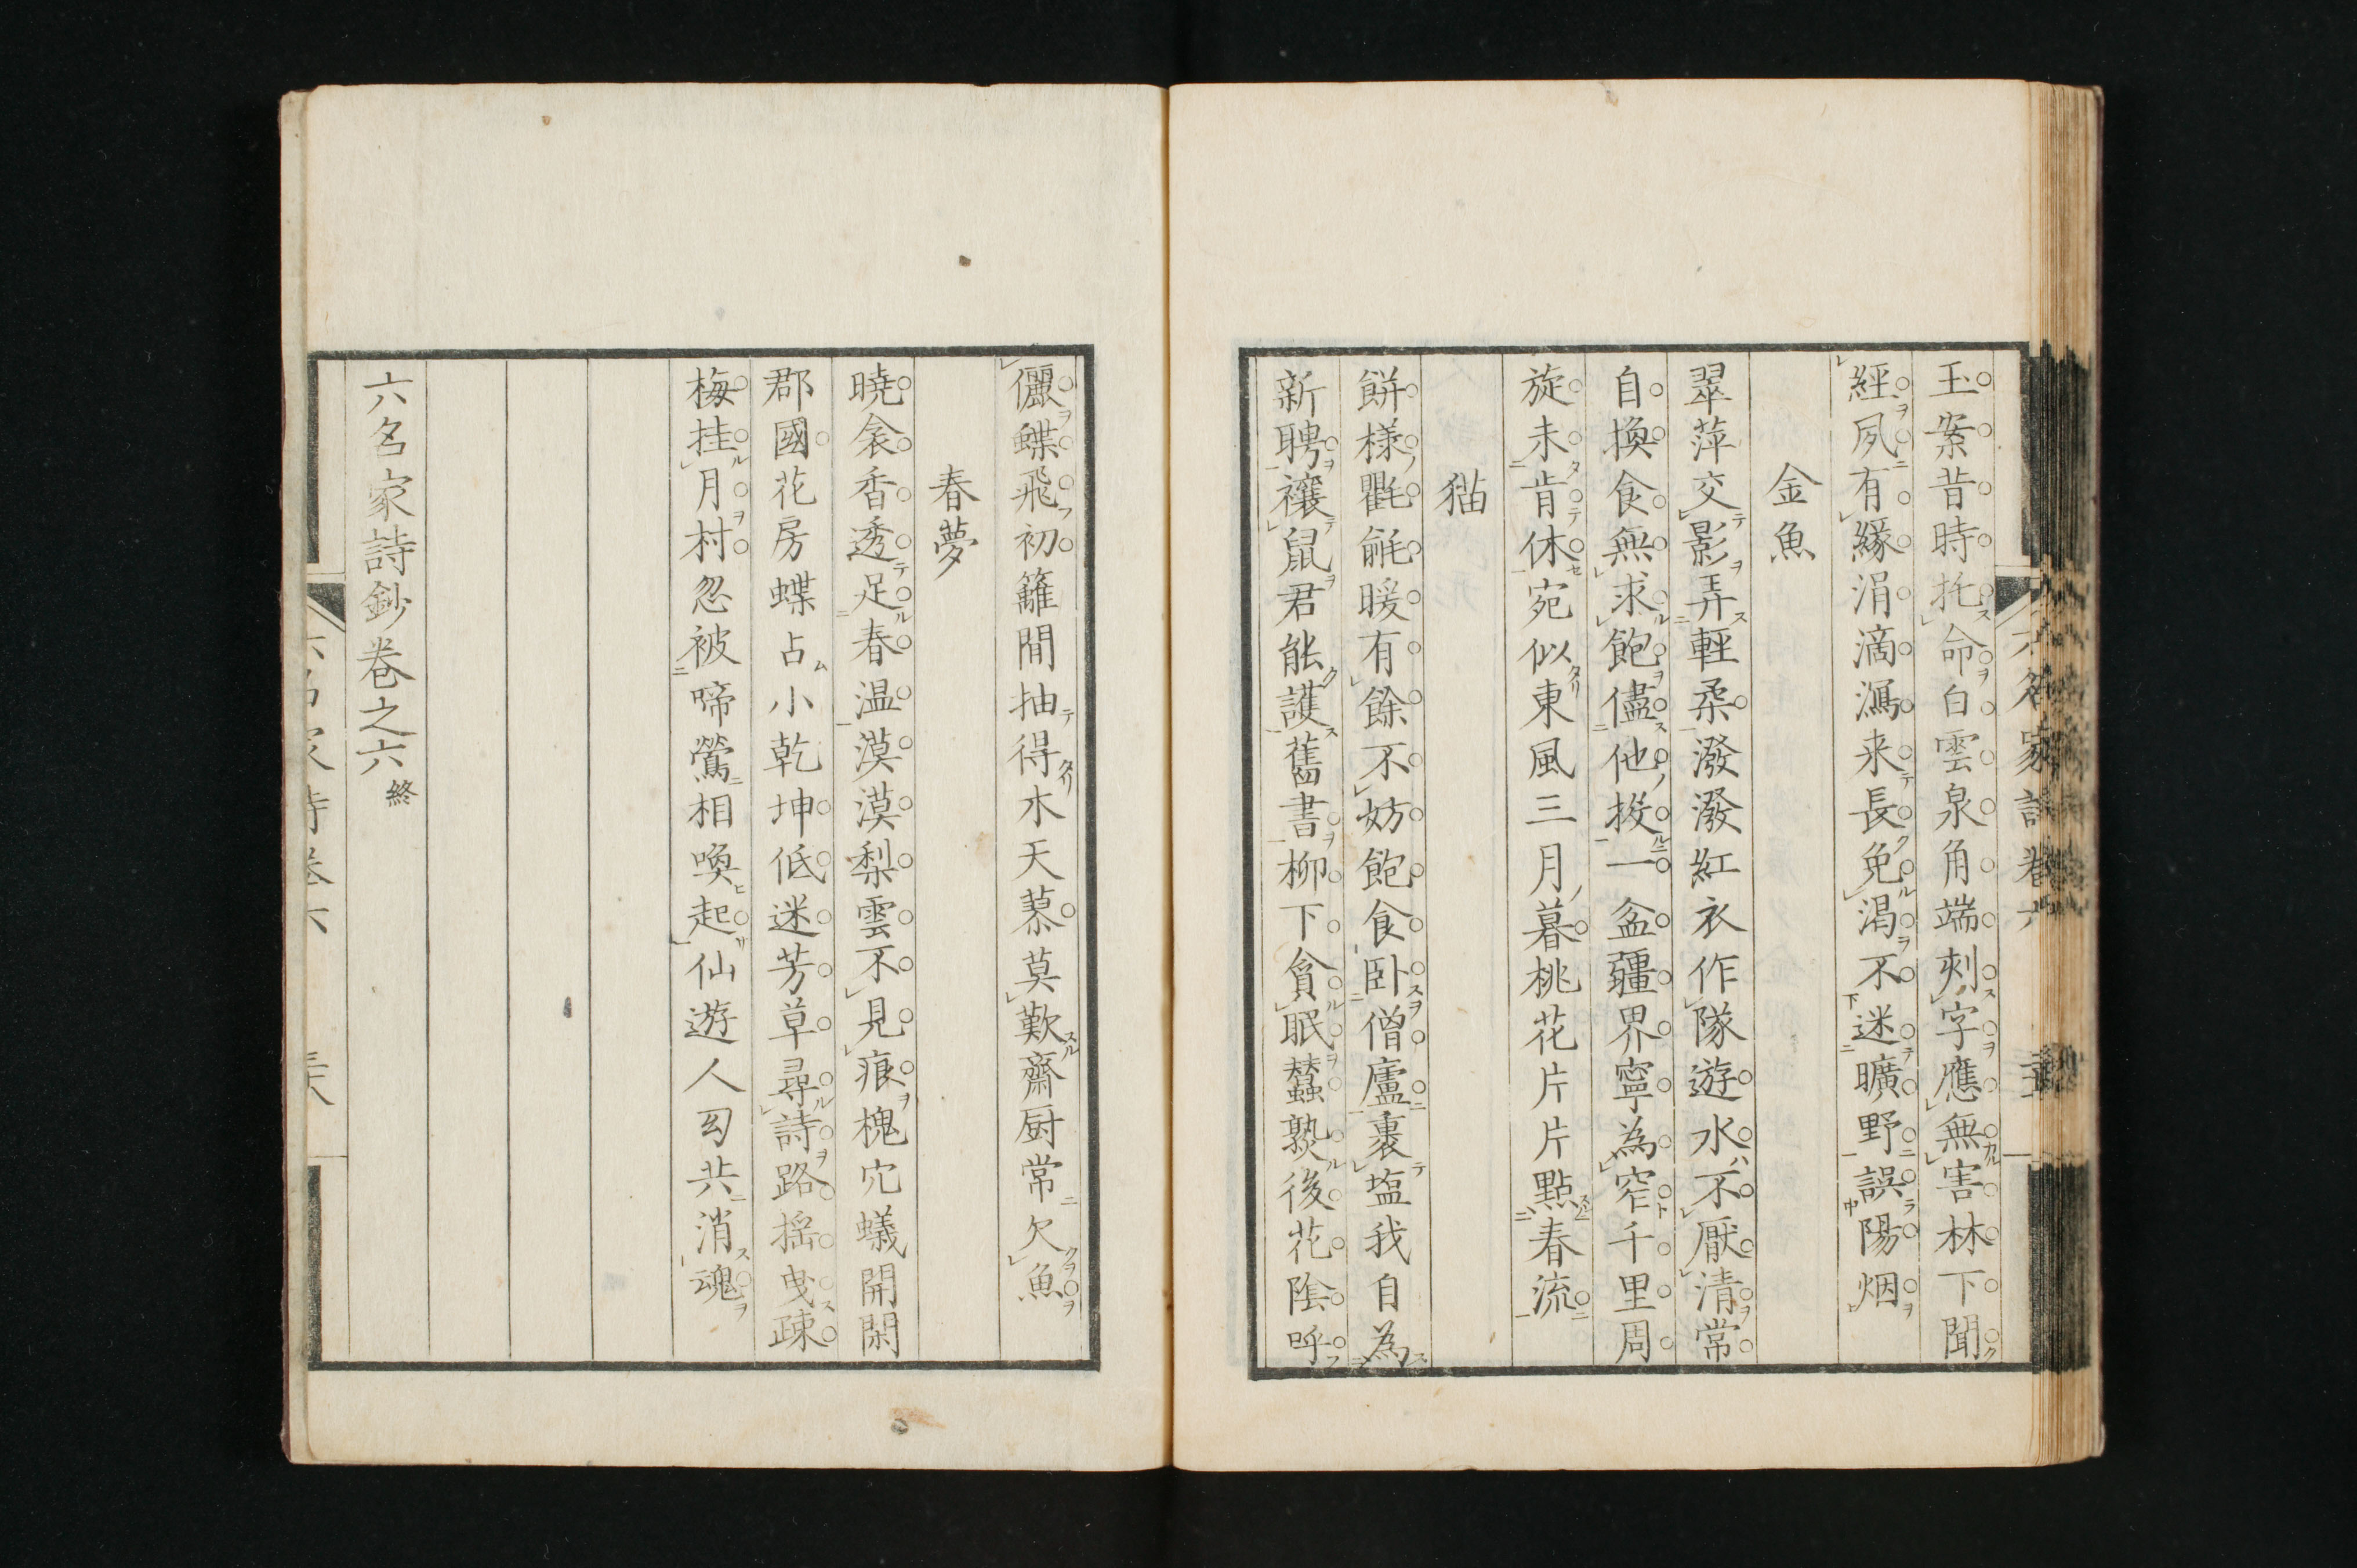 六名家詩卷六
玉案昔時托命白雲泉角端刺字應無害林下聞
經夙有緣涓滴瀉来長免渴不迷曠野誤陽烟
金魚
翠萍交影弄輕柔潑潑紅衣作隊遊水不厭清常
自換食無求飽儘他投一盆疆界寧為窄千里周
旋未肯休宛似東風三月暮桃花片片點春流
猫
餅樣氍毹暖有餘不妨飽食臥僧廬裹塩我自為
新聘禳鼠君能護舊書柳下貪眠蠶熟後花陰呼
儷蝶飛初籬間抽得木天蓼莫歎齋厨常欠魚
春夢
曉衾香透足春温漠漠梨雲不見痕槐穴蟻開閑
郡國花房蝶占小乾坤低迷芳草尋詩路揺曳疎
梅挂月村忽被啼鶯相喚起仙遊人共消魂
六名家詩鈔卷之六終